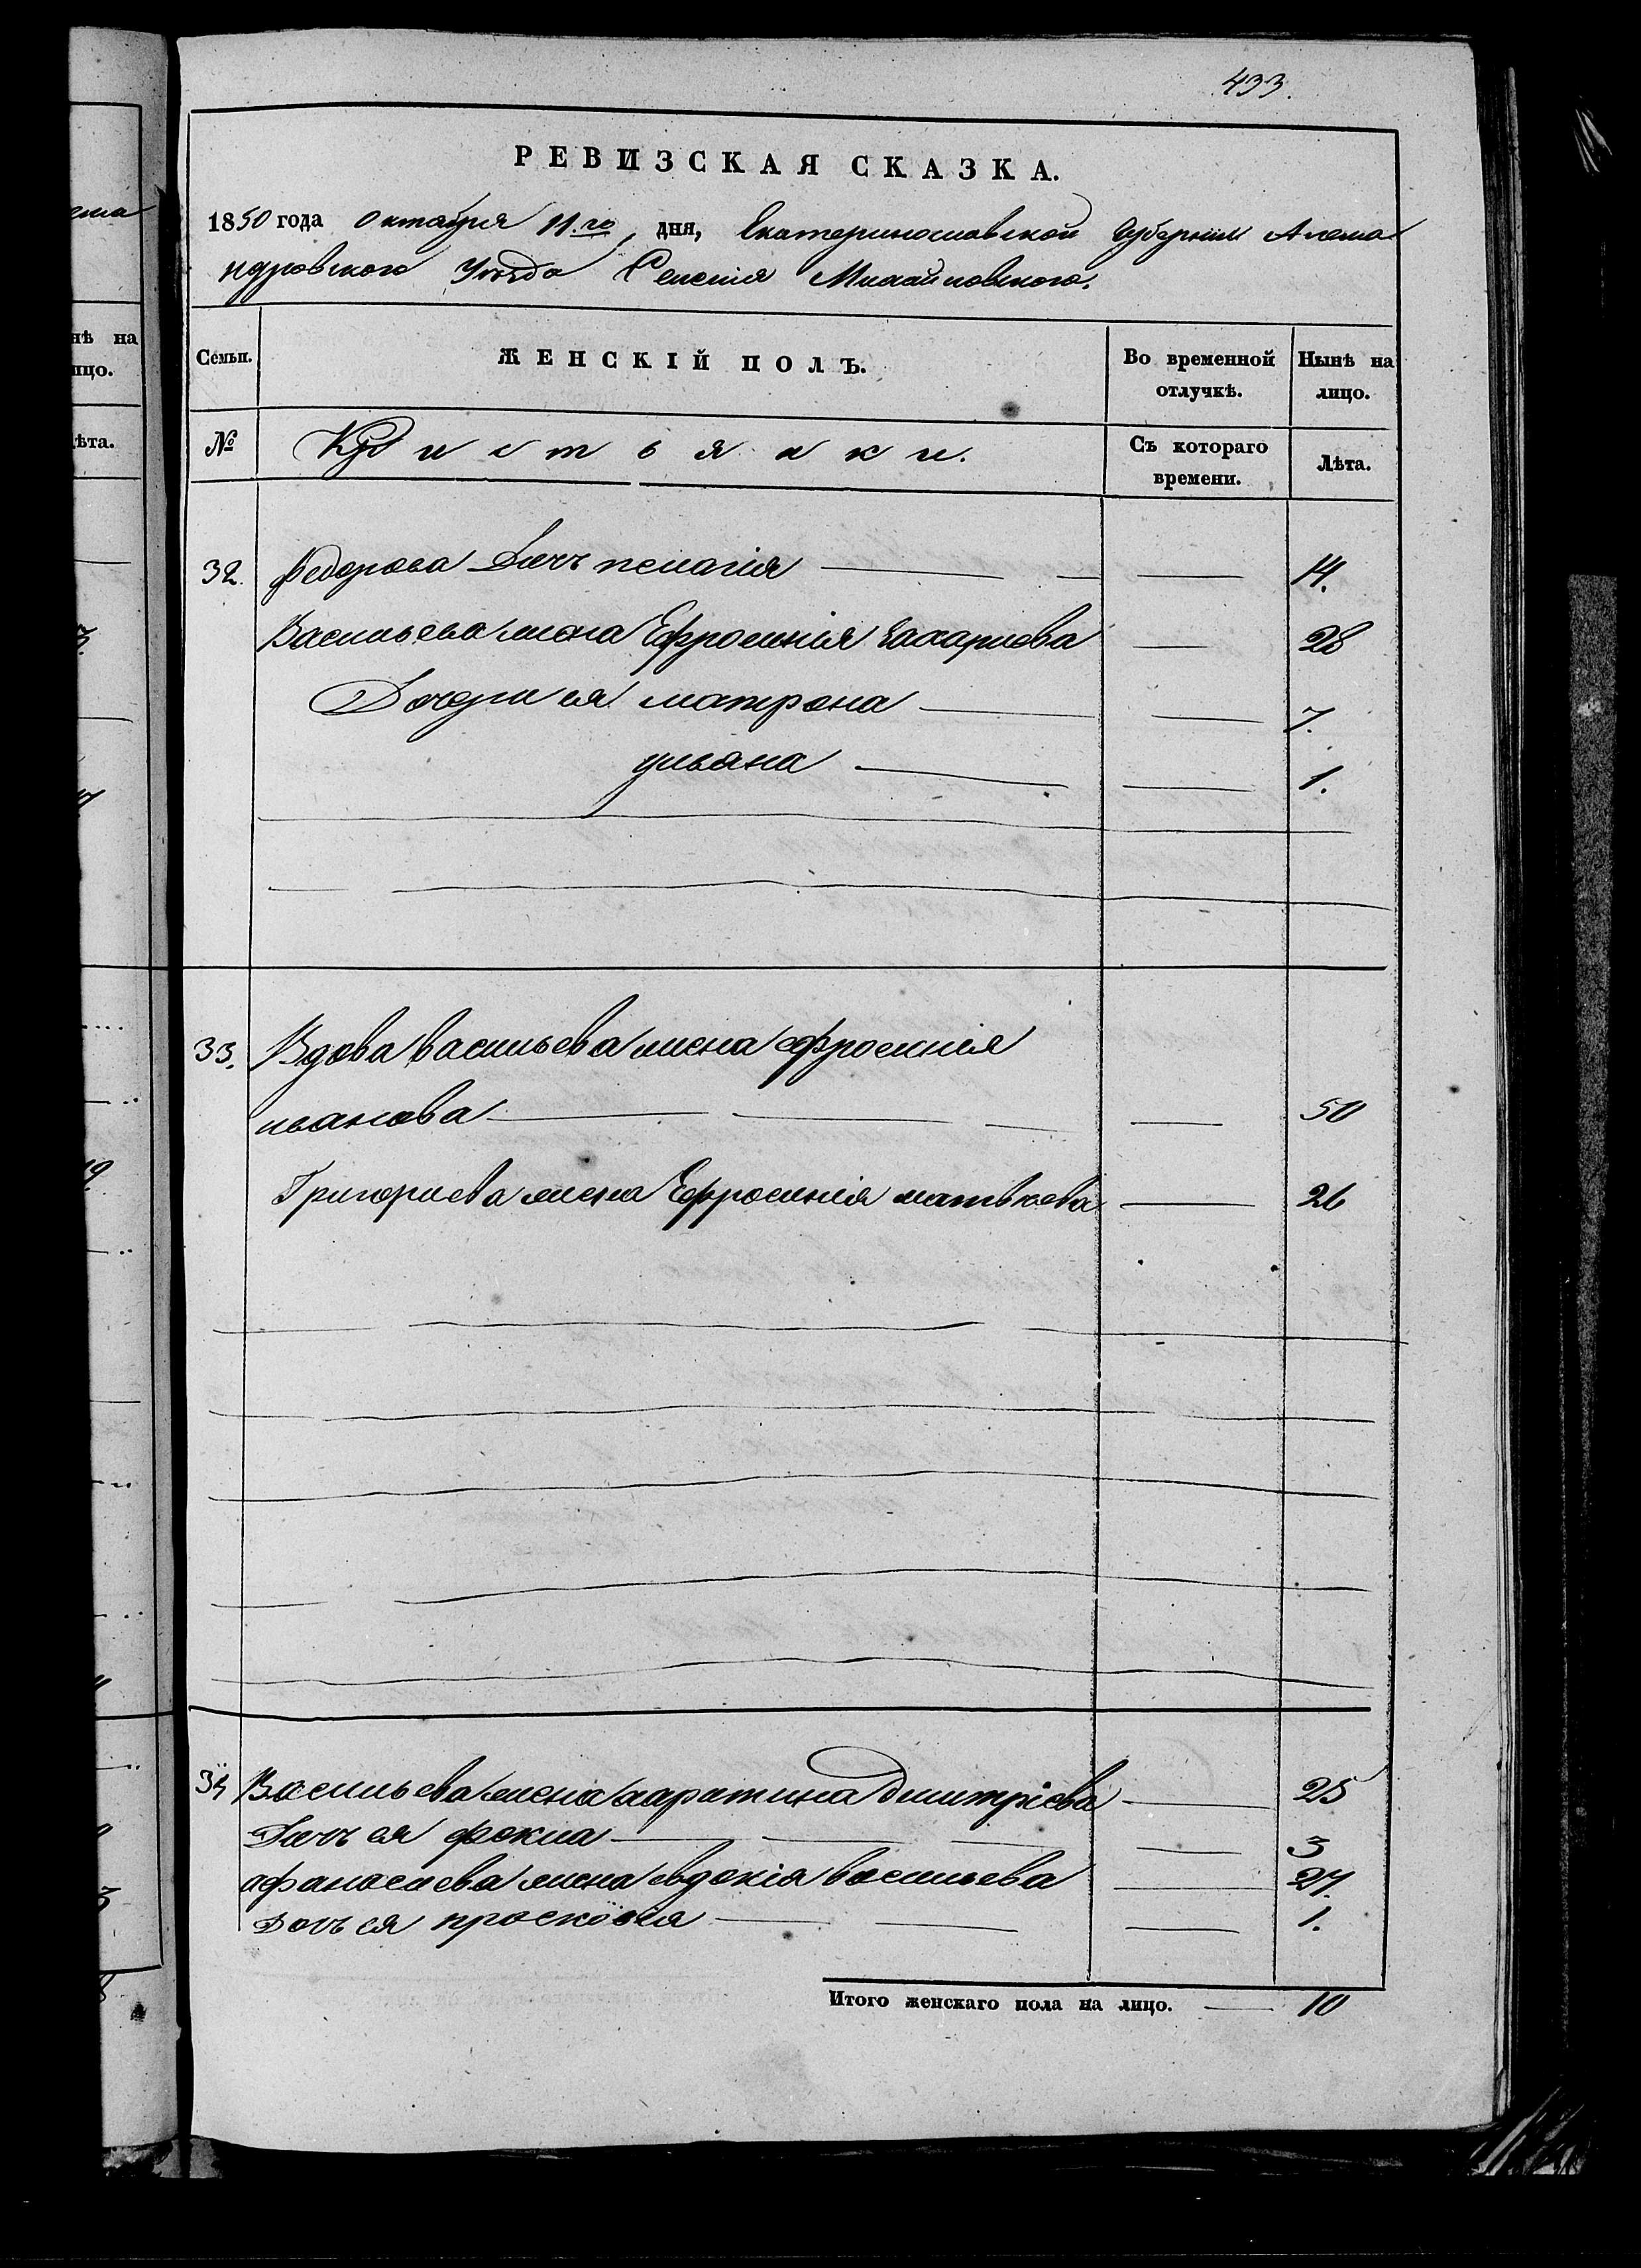 433.
РЕВИЗСКАЯ СКАЗКА.
1850 года Октября 11.го, дня, Екатеринославской Губернии Алекса
ндровского Уезда Селения Михайловского.
Семьи. ЖЕНСКІЙ ПОЛЪ. Во временной отлучкѣ. Нынѣ на лицо.
№ Крестьянки. Съ котораго времени. Лѣта.
32. федорова Дочь пелагія 14.
Васильева жена Ефросинія Захариева 28
Дочери ея матрона 7.
ульяна 1.
33. Вдова васильева жена ефросинія
иванова 50
Григориева жена Ефросинія матвѣева 26
34 Васильева жена харитина дмитріева 25
Дочь ея фокла 3
афанасиева жена евдокія васильева 27.
Дочь ея просковия 1.
Итого женскаго пола на лицо. 10
нѣ на
ицо.
ѣта.